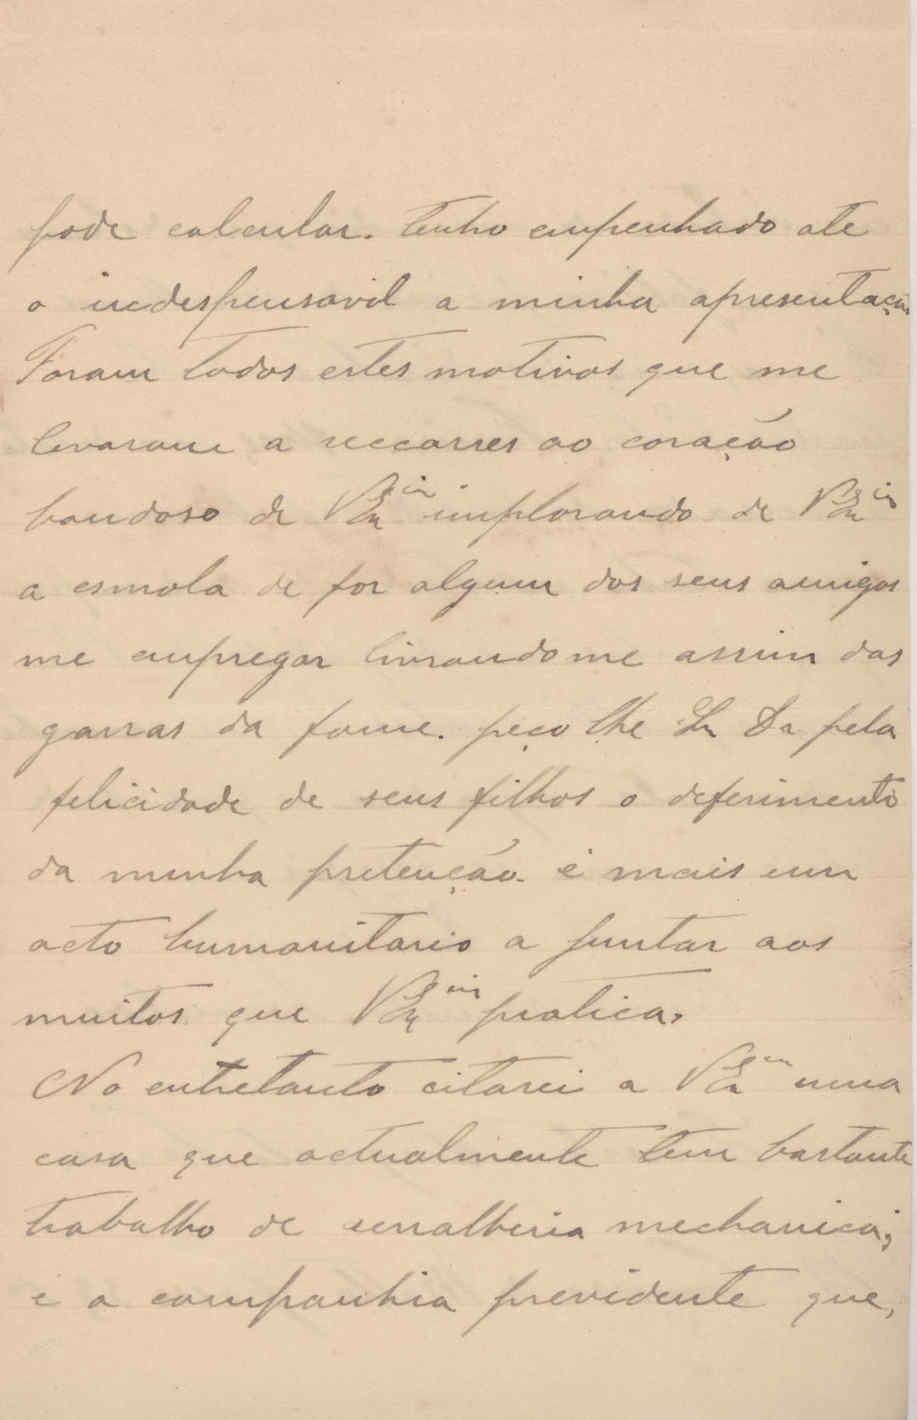 pode calcular. tenho empenhado ate
o indespensavil a minha apresentação
Foram todos estes motivos que me
levaram a reccorrer ao coração
bondoso de V Exª implorando de V Exª
a esmola de por algum dos seus amigos
me empregar livrandome assim das
garras da fome. peço lhe Sr Dr pela
felicidade de seus filhos o deferimento
da minha pretenção. é mais um
acto humanitario a juntar aos
muitos que V Exª pratica.
No entretanto citarei a V Exª uma
casa que actualmente tem bastante
trabalho de serralheria mechanica;
é a companhia previdente que,